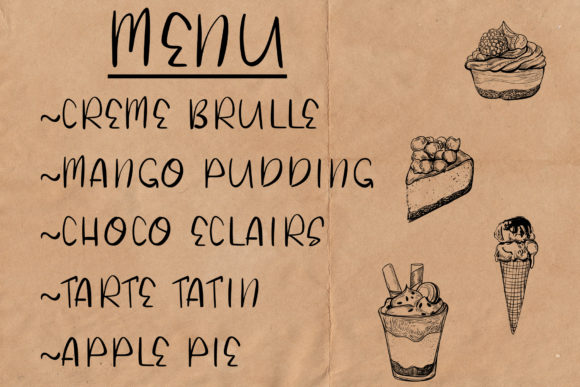 MENU
~CREME BRULLE
~MANGO PUDDING
~CHOCO ECLAIRS
~TARTE TATIN
~APPLE PIE